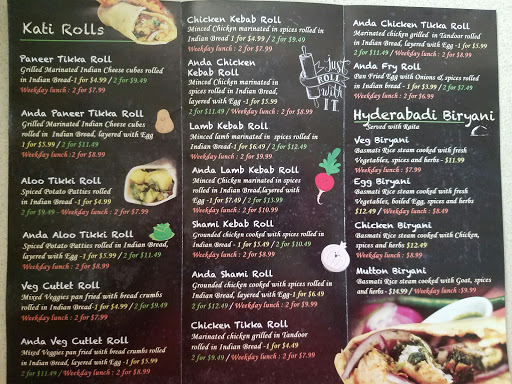 Kati Rolls
Paneer Tikka Roll
Grilled Marinated Indian Cheese cubes rolled
in Indian Bread-1 for $4.99 / 2 for $9.49
Weekday lunch : 2 for $7.99
Anda Paneer Tikka Roll
Grilled Marinated Indian Cheese cubes
rolled in Indian Bread, layered with Egg
1 for $5.99 / 2 for $11.49
Weekday lunch : 2 for $8.99
Aloo Tikki Roll
Spiced Potato Patties rolled
in Indian Bread -1 for $4.99
2 for $9.49 - Weekday lunch : 2 for $7.99
Anda Aloo Tikki Roll
Spiced Potato Patties rolled in Indian Bread,
layered with Egg -1 for $5.99 / 2 for $11.49
Weekday lunch : 2 for $8.99
Veg Cutlet Roll
Mixed Veggies pan fried with bread crumbs
rolled in Indian Bread-1 for $4.99 / 2 for $9.49
Weekday lunch : 2 for $7.99
Anda Veg Cutlet Roll
Mixed Veggies pan fried with bread crumbs rolled
in Indian Bread, layered with Egg -1 for $5.99
2 for $11.49 / Weekday lunch : 2 for $8.99
Chicken Kebab Roll
Minced Chicken marinated in spices rolled in
Indian Bread -1 for $4.99 / 2 for $9.49
Weekday lunch : 2 for $7.99
Anda Chicken
Kebab Roll
Minced Chicken marinated in
spices rolled in Indian Bread,
layered with Egg -1 for $5.99
2 for $11.49 / Weekday lunch : 2 for $8.99
Lamb Kebab Roll
Minced lamb marinated in spices rolled in
Indian Bread -1 for $6.49 / 2 for $12.49
Weekday lunch : 2 for $9.99
Anda Lamb Kebab Roll
Minced Chicken marinated in spices
rolled in Indian Bread,layered with
Egg -1 for $7.49 / 2 for $13.99
Weekday lunch : 2 for $10.99
Shami Kebab Roll
Grounded chicken cooked with spices rolled in
Indian Bread - 1 for $5.49 / 2 for $10.49
Weekday lunch : 2 for $8.99
Anda Shami Roll
Grounded chicken cooked with spices rolled in
Indian Bread, layered with Egg-1 for $6.49
2 for $12.49 / Weekday lunch : 2 for $9.99
Chicken Tikka Roll
Marinated chicken grilled in Tandoor
rolled in Indian Bread -1 for $4.49
2 for $9.49 / Weekday lunch : 2 for $7.99
Just
ROLL
with
IT
Anda Chicken Tikka Roll
Marinated chicken grilled in Tandoor rolled in
Indian Bread, layered with Egg -1 for $5.99
2 for $11.49 / Weekday lunch : 2 for $8.99
Anda Fry Roll
Pan Fried Egg with Onions & spices rolled
in Indian Bread - 1 for $3.99 / 2 for $7.49
Weekday lunch : 2 for $6.99
Hyderabadi Biryani
Served with Raita
Veg Biryani
Basmati Rice steam cooked with fresh
Vegetables, spices and herbs - $11.99
Weekday lunch : $7.99
Egg Biryani
Basmati Rice steam cooked with fresh
Vegetables, boiled Egg, spices and herbs
$12.49 / Weekday lunch : $8.49
Chicken Biryani
Basmati Rice steam cooked with Chicken,
spices and herbs $12.49
Weekday lunch : $8.99
Mutton Biryani
Basmati Rice steam cooked with Goat, spices
and herbs - $14.99 / Weekday lunch :$9.99